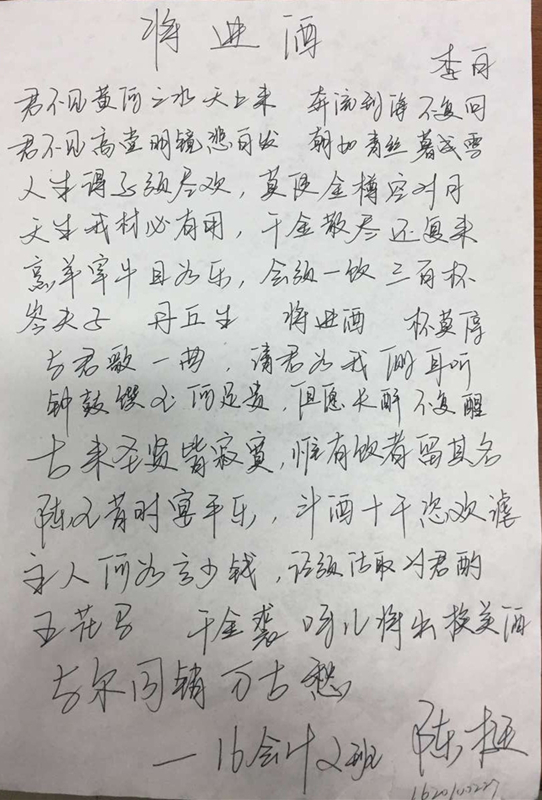 将进酒
李白
君不见黄河之水天上来 奔流到海不复回
君不见高堂明镜悲白发 朝如青丝暮成雪
人生得意须尽欢，莫使金樽空对月
天生我材必有用，千金散尽还复来
烹羊宰牛且为乐，会须一饮三百杯
岑夫子 丹丘生 将进酒 杯莫停
与君歌一曲，请君为我侧耳听
钟鼓馔玉何足贵，但愿长醉不复醒
古来圣贤皆寂寞，惟有饮者留其名
陈王昔时宴平乐，斗酒十千恣欢谑
主人何为言少钱，径须沽取对君酌
五花马 千金裘 呼儿将出换美酒
与尔同销万古愁
—16会计2班 陈